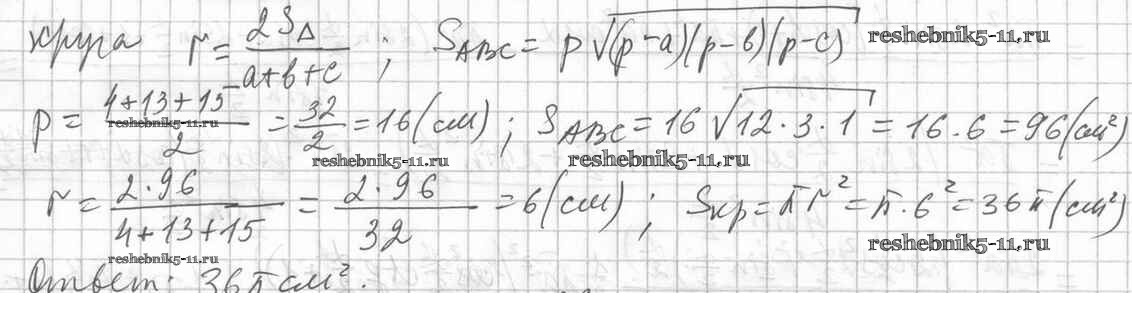 круга r = 2S△ / a+b+c ; S ABC = p√(p-a)(p-в)(p-c) reshebnik5-11.ru
p = 4+13+15 / 2 = 32 / 2 = 16 (см) ; S ABC = 16 √12·3·1 = 16·6 = 96 (см²)
reshebnik5-11.ru
reshebnik5-11.ru reshebnik5-11.ru
r = 2·96 / 4+13+15 = 2·96 / 32 = 6 (см) ; Sкр = πr² = π·6² = 36π (см²)
reshebnik5-11.ru
reshebnik5-11.ru
Ответ: 36π см².